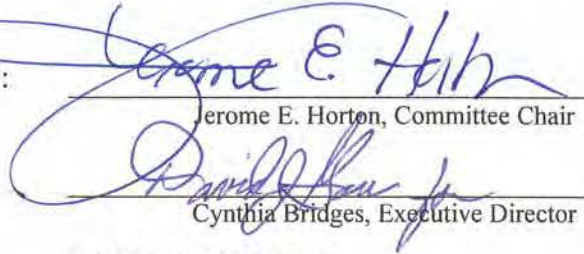 : Jerome E. Horton
Jerome E. Horton, Committee Chair
David J. for
Cynthia Bridges, Executive Director